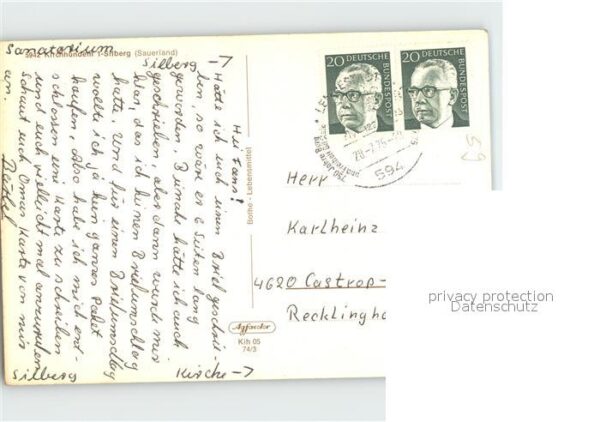 Sanatorium
5942 Kirchhundem 1-Silberg (Sauerland)
Silberg →
Hi Fans!
Hätte ich euch einen Brief geschrie-
ben, so wär er 6 Seiten lang
geworden. Beinahe hätte ich auch
geschrieben, aber dann wurde mir
klar, das ich keinen Briefumschlag
hatte. Und für einen Briefumschlag
wollte ich ja kein ganzes Paket
kaufen. Also habe ich mich ent-
schlossen eine Karte zu schreiben
und euch vielleicht mal anzurufen
Schaut euch Omas Karte von mir
an.
Silberg
Kirche →
Botho - Lebensmittel
Agfacolor
Kih 05
74/3
20 DEUTSCHE BUNDESPOST
20 DEUTSCHE BUNDESPOST
594
Herr
Karlheinz
4620 Castrop-
Recklingha
privacy protection
Datenschutz